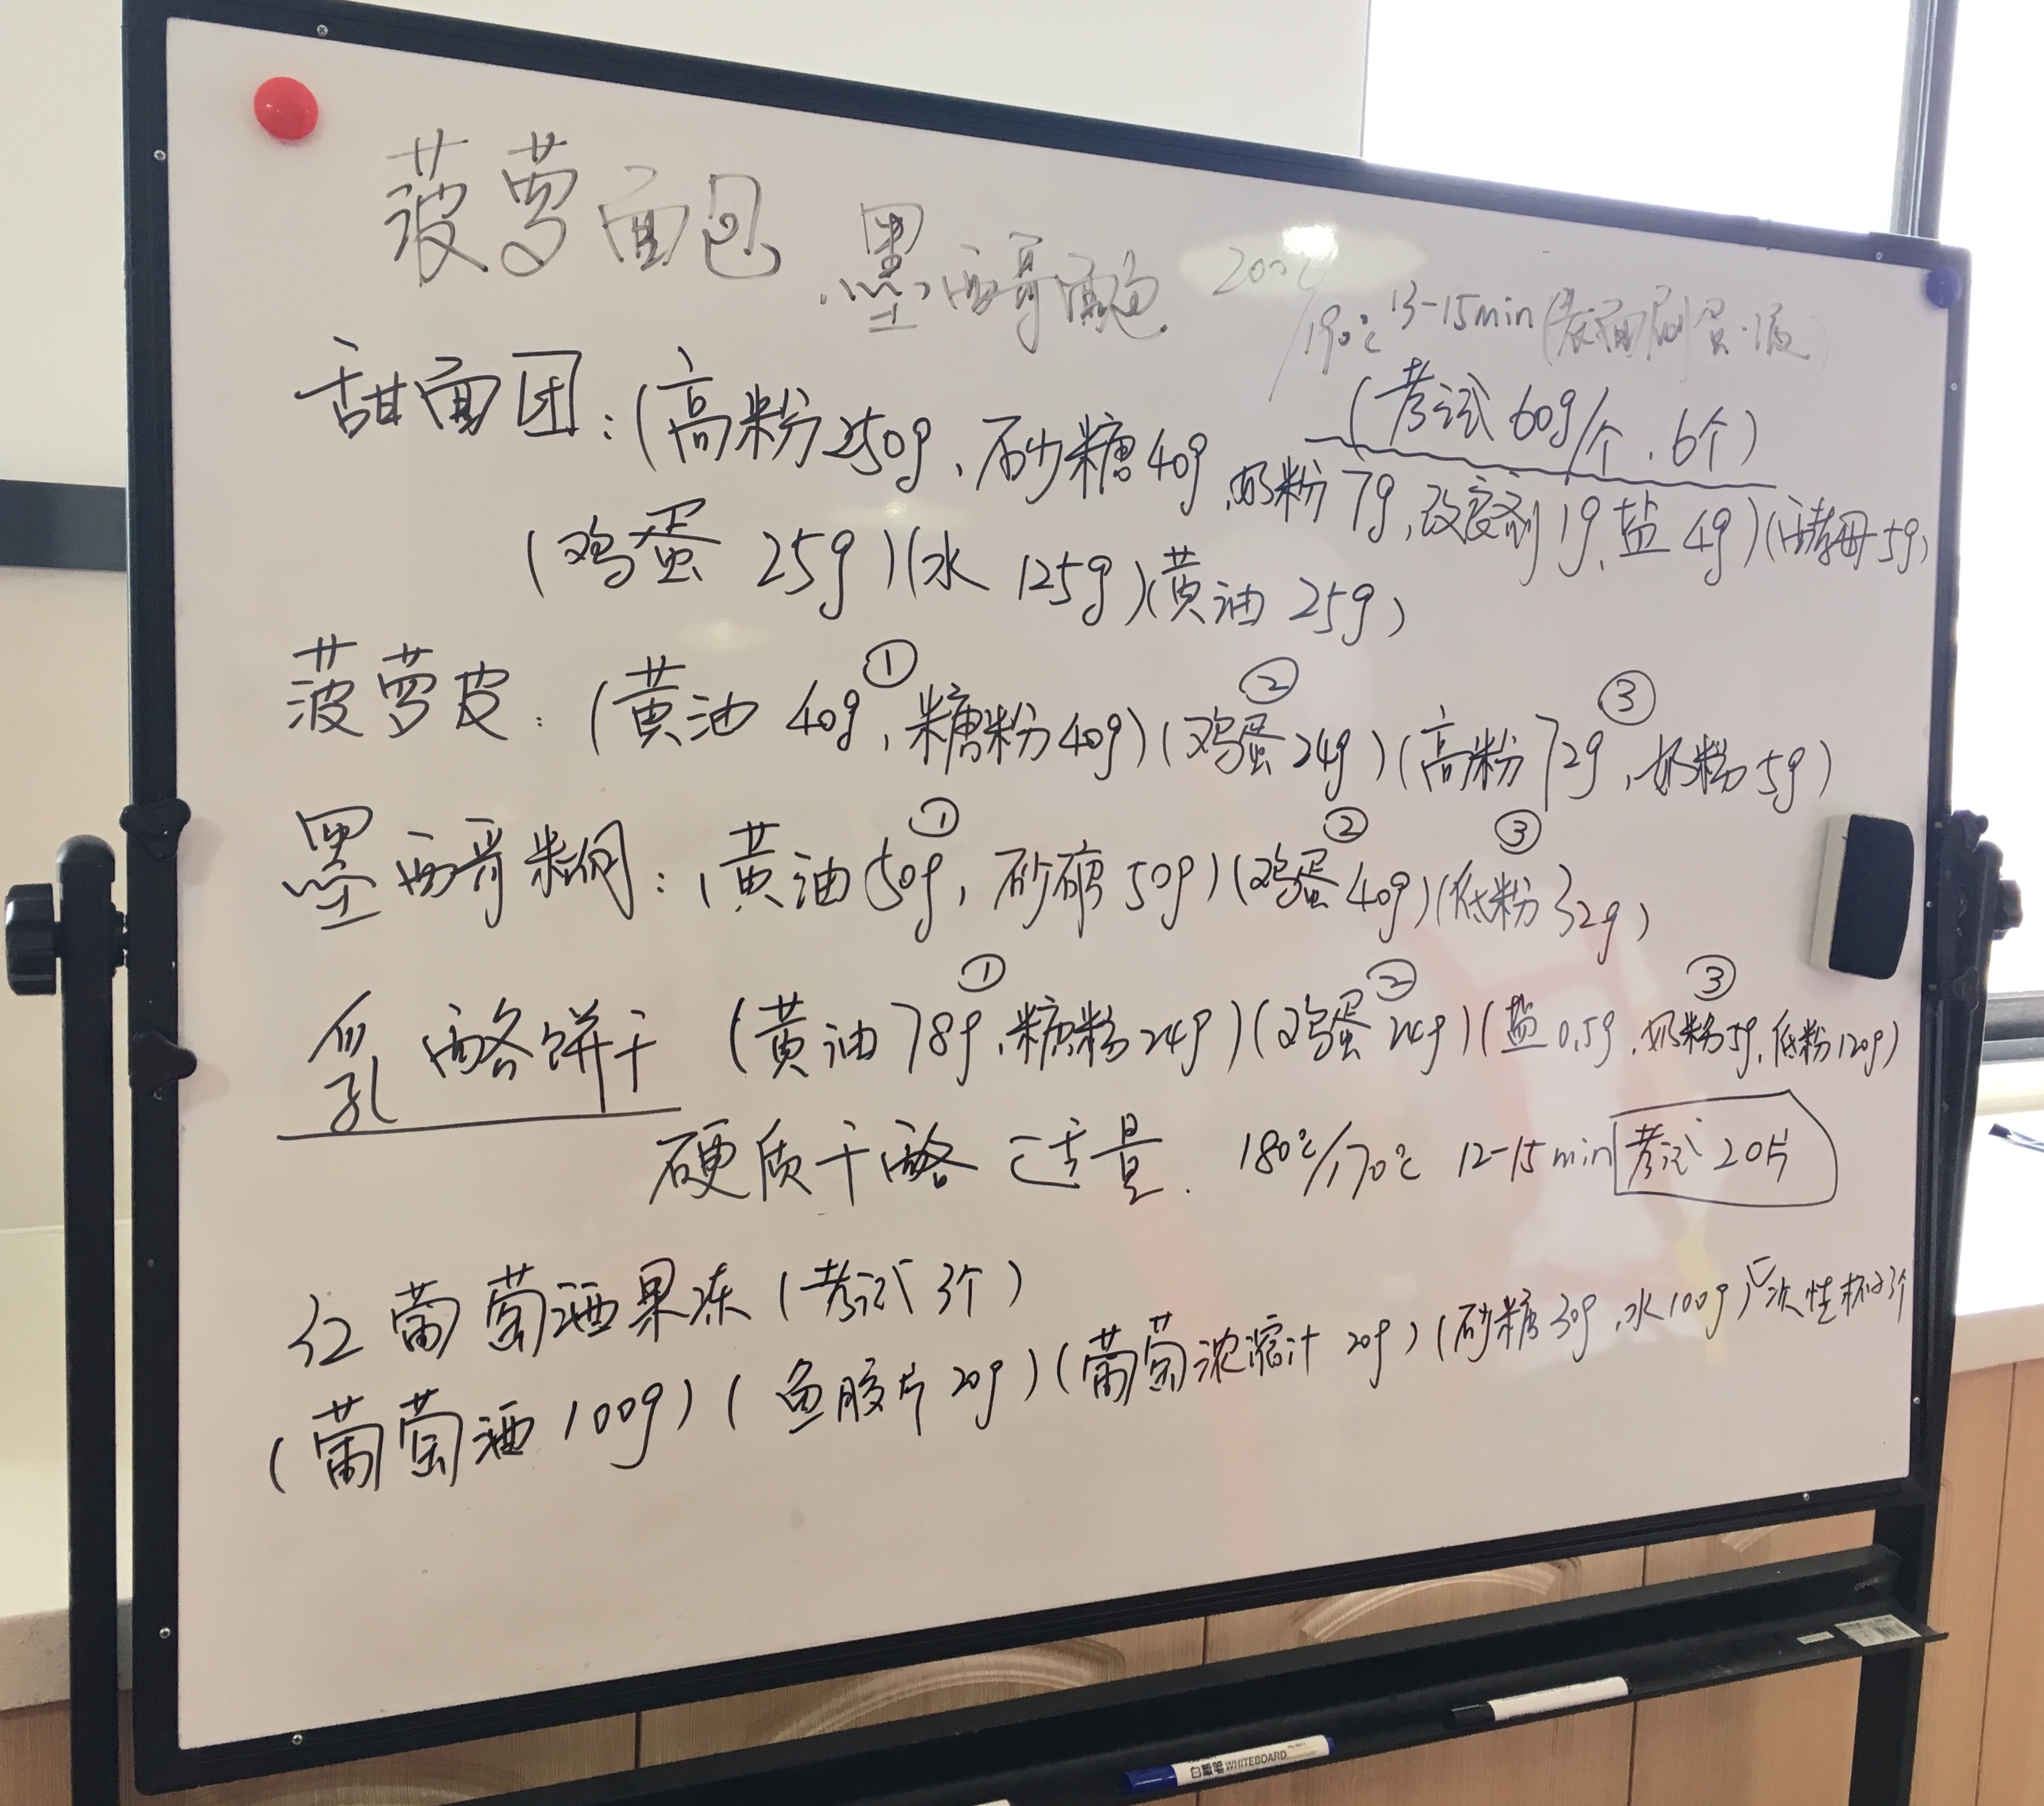 菠萝面包 墨西哥面包 200℃/190℃ 13-15min(表面刷蛋液)
(考试60g/个.6个)
甜面团:(高粉250g、砂糖40g、奶粉7g、改良剂1g、盐4g)(酵母5g)
(鸡蛋 25g)(水 125g)(黄油 25g)
① ② ③
菠萝皮:(黄油 40g、糖粉40g)(鸡蛋24g)(高粉72g、奶粉5g)
① ② ③
墨西哥糊:(黄油50g、砂糖50g)(鸡蛋40g)(低粉32g)
① ② ③
乳酪饼干 (黄油78g、糖粉24g)(鸡蛋24g)(盐0.5g、奶粉5g、低粉120g)
硬质干酪 适量. 180℃/170℃ 12-15min 考试20片
红葡萄酒果冻(考试3个)
(葡萄酒100g)(鱼胶片20g)(葡萄浓缩汁20g)(砂糖30g、水100g)一次性杯子3个
白板笔 WHITEBOARD